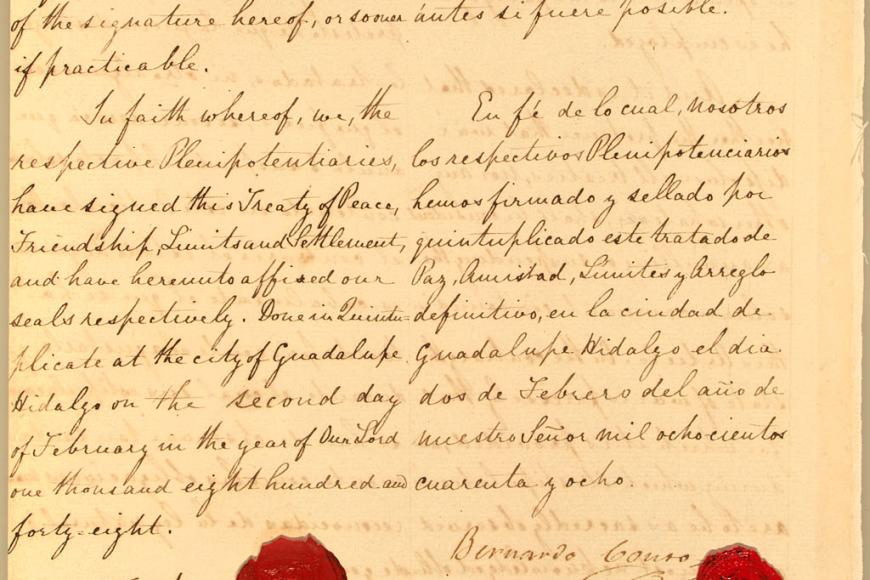 of the signature hereof, or sooner
if practicable.
In faith whereof, we, the
respective Plenipotentiaries,
have signed this Treaty of Peace,
Friendship, Limits and Settlement,
and have hereunto affixed our
seals respectively. Done in Quintu=
plicate at the city of Guadalupe
Hidalgo on the second day
of February in the year of Our Lord
one thousand eight hundred and
forty-eight.
ántes si fuere posible.
En fé de lo cual, nosotros
los respectivos Plenipotenciarios
hemos firmado y sellado por
quintuplicado este tratado de
Paz, Amistad, Límites y Arreglo
definitivo, en la ciudad de
Guadalupe Hidalgo el dia
dos de Febrero del año de
nuestro Señor mil ochocientos
cuarenta y ocho.
Bernardo Couto